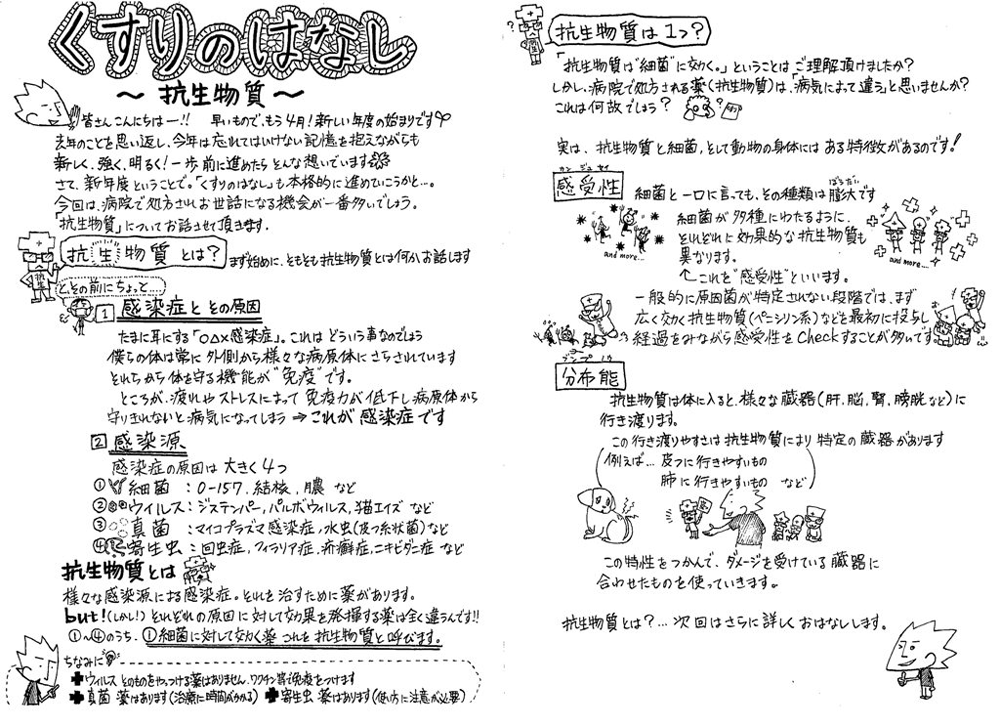 くすりのはなし
～抗生物質～
皆さんこんにちはー!! 早いもので、もう4月！新しい年度の始まりです
去年のことを思い返し、今年は忘れてはいけない記憶を抱えながらも
新しく、強く、明るく！一歩前に進めたら そんな想いでいます
さて、新年度ということで。「くすりのはなし」も本格的に進めていこうかと…。
今回は、病院で処方されお世話になる機会が一番多いでしょう。
「抗生物質」についてお話させて頂きます。
抗生物質とは？ まず始めに、そもそも抗生物質とは何かお話します
と、その前にちょっと…
1 感染症とその原因
たまに耳にする「○△×感染症」。これは どういう事なのでしょう
僕らの体は常に外側から様々な病原体にさらされています
それらから体を守る機能が"免疫"です。
ところが、疲れやストレスによって 免疫力が低下し病原体から
守りきれないと病気になってしまう ⇒これが感染症です
2 感染源
感染症の原因は 大きく4つ
① 細菌：O-157、結核、膿 など
② ウィルス：ジステンパー、パルボウィルス、猫エイズ など
③ 真菌：マイコプラズマ感染症、水虫(皮フ糸状菌)など
④ 寄生虫：回虫症、フィラリア症、疥癬症、ニキビダニ症 など
抗生物質とは
様々な感染源による感染症。それを治すために薬があります。
but!(しかし!) それぞれの原因に対して効果を発揮する薬は全く違うんです!!
①～④のうち、①細菌に対して効く薬 これを抗生物質と呼びます。
ちなみに
✚ウィルス そのものをやっつける薬はありません。ワクチン等で免疫をつけます
✚真菌 薬はあります(治療に時間がかかる) ✚寄生虫 薬はあります(使い方に注意が必要)
抗生物質は1つ？
「抗生物質は"細菌"に効く。」ということは ご理解頂けましたか？
しかし、病院で処方される薬(抗生物質)は、「病気によって違う」と思いませんか？
これは何故でしょう？
実は、抗生物質と細菌、そして動物の身体には ある特徴があるのです！
カンジュセイ
感受性 細菌と一口に言っても、その種類は膨大です
ぼうだい
細菌が多種にわたるように、
それぞれに効果的な抗生物質も
異なります。
and more…
and more…
これを"感受性"といいます。
一般的に原因菌が特定されない段階では、まず
広く効く抗生物質(ペニシリン系)などを最初に投与し
経過をみながら感受性をCheckすることが多いです
ブンプ
分布能
抗生物質は体に入ると、様々な臓器(肝、脳、腎、膀胱など)に
行き渡ります。
この行き渡りやすさは抗生物質により特定の臓器があります
例えば… 皮フに行きやすいもの
肺に行きやすいもの など
この特性をつかんで、ダメージを受けている臓器に
合わせたものを使っていきます。
抗生物質とは？… 次回はさらに詳しくおはなしします。